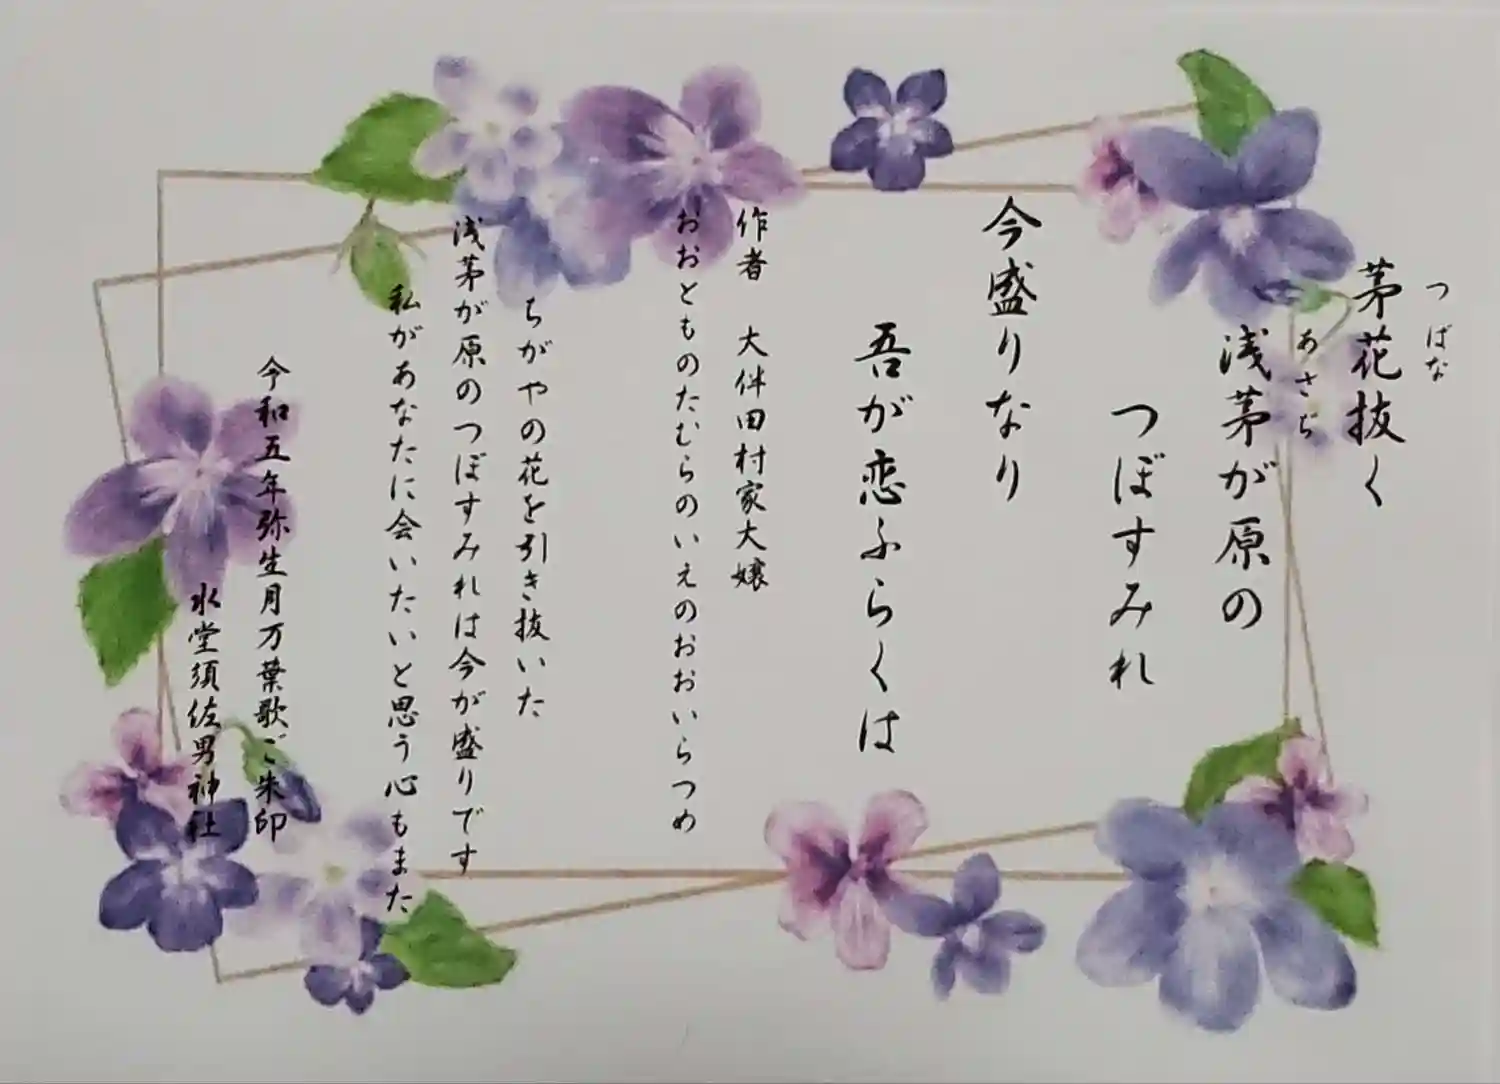 つばな
茅花抜く
あさぢ
浅茅が原の
つぼすみれ
今盛りなり
吾が恋ふらくは
作者 大伴田村家大嬢
おおとものたむらのいえのおおいらつめ
ちがやの花を引き抜いた
浅茅が原のつぼすみれは今が盛りです
私があなたに会いたいと思う心もまた
令和五年弥生月万葉歌ご朱印
水堂須佐男神社